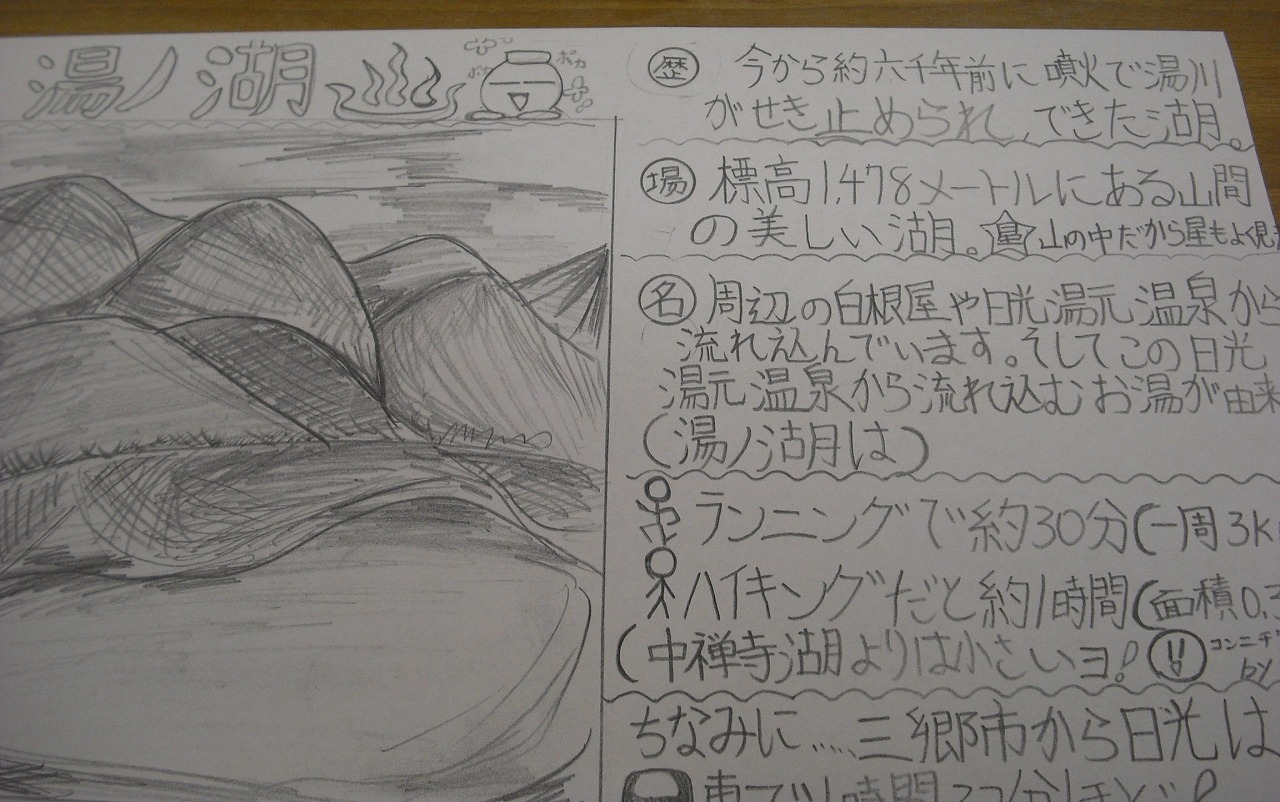 湯ノ湖
ポカ
ポカ
歴 今から約六千年前に噴火で湯川
がせき止められ、できた湖。
場 標高1,478メートルにある山間
の美しい湖。星 山の中だから星もよく見
名 周辺の白根屋や日光湯元温泉から
流れ込んでいます。そしてこの日光
湯元温泉から流れ込むお湯が由来
(湯ノ湖は)
ランニングで約30分(一周3k
ハイキングだと約1時間(面積0.3
(中禅寺湖よりは小さいヨ! コンニチ
by
ちなみに.....三郷市から日光は
車で